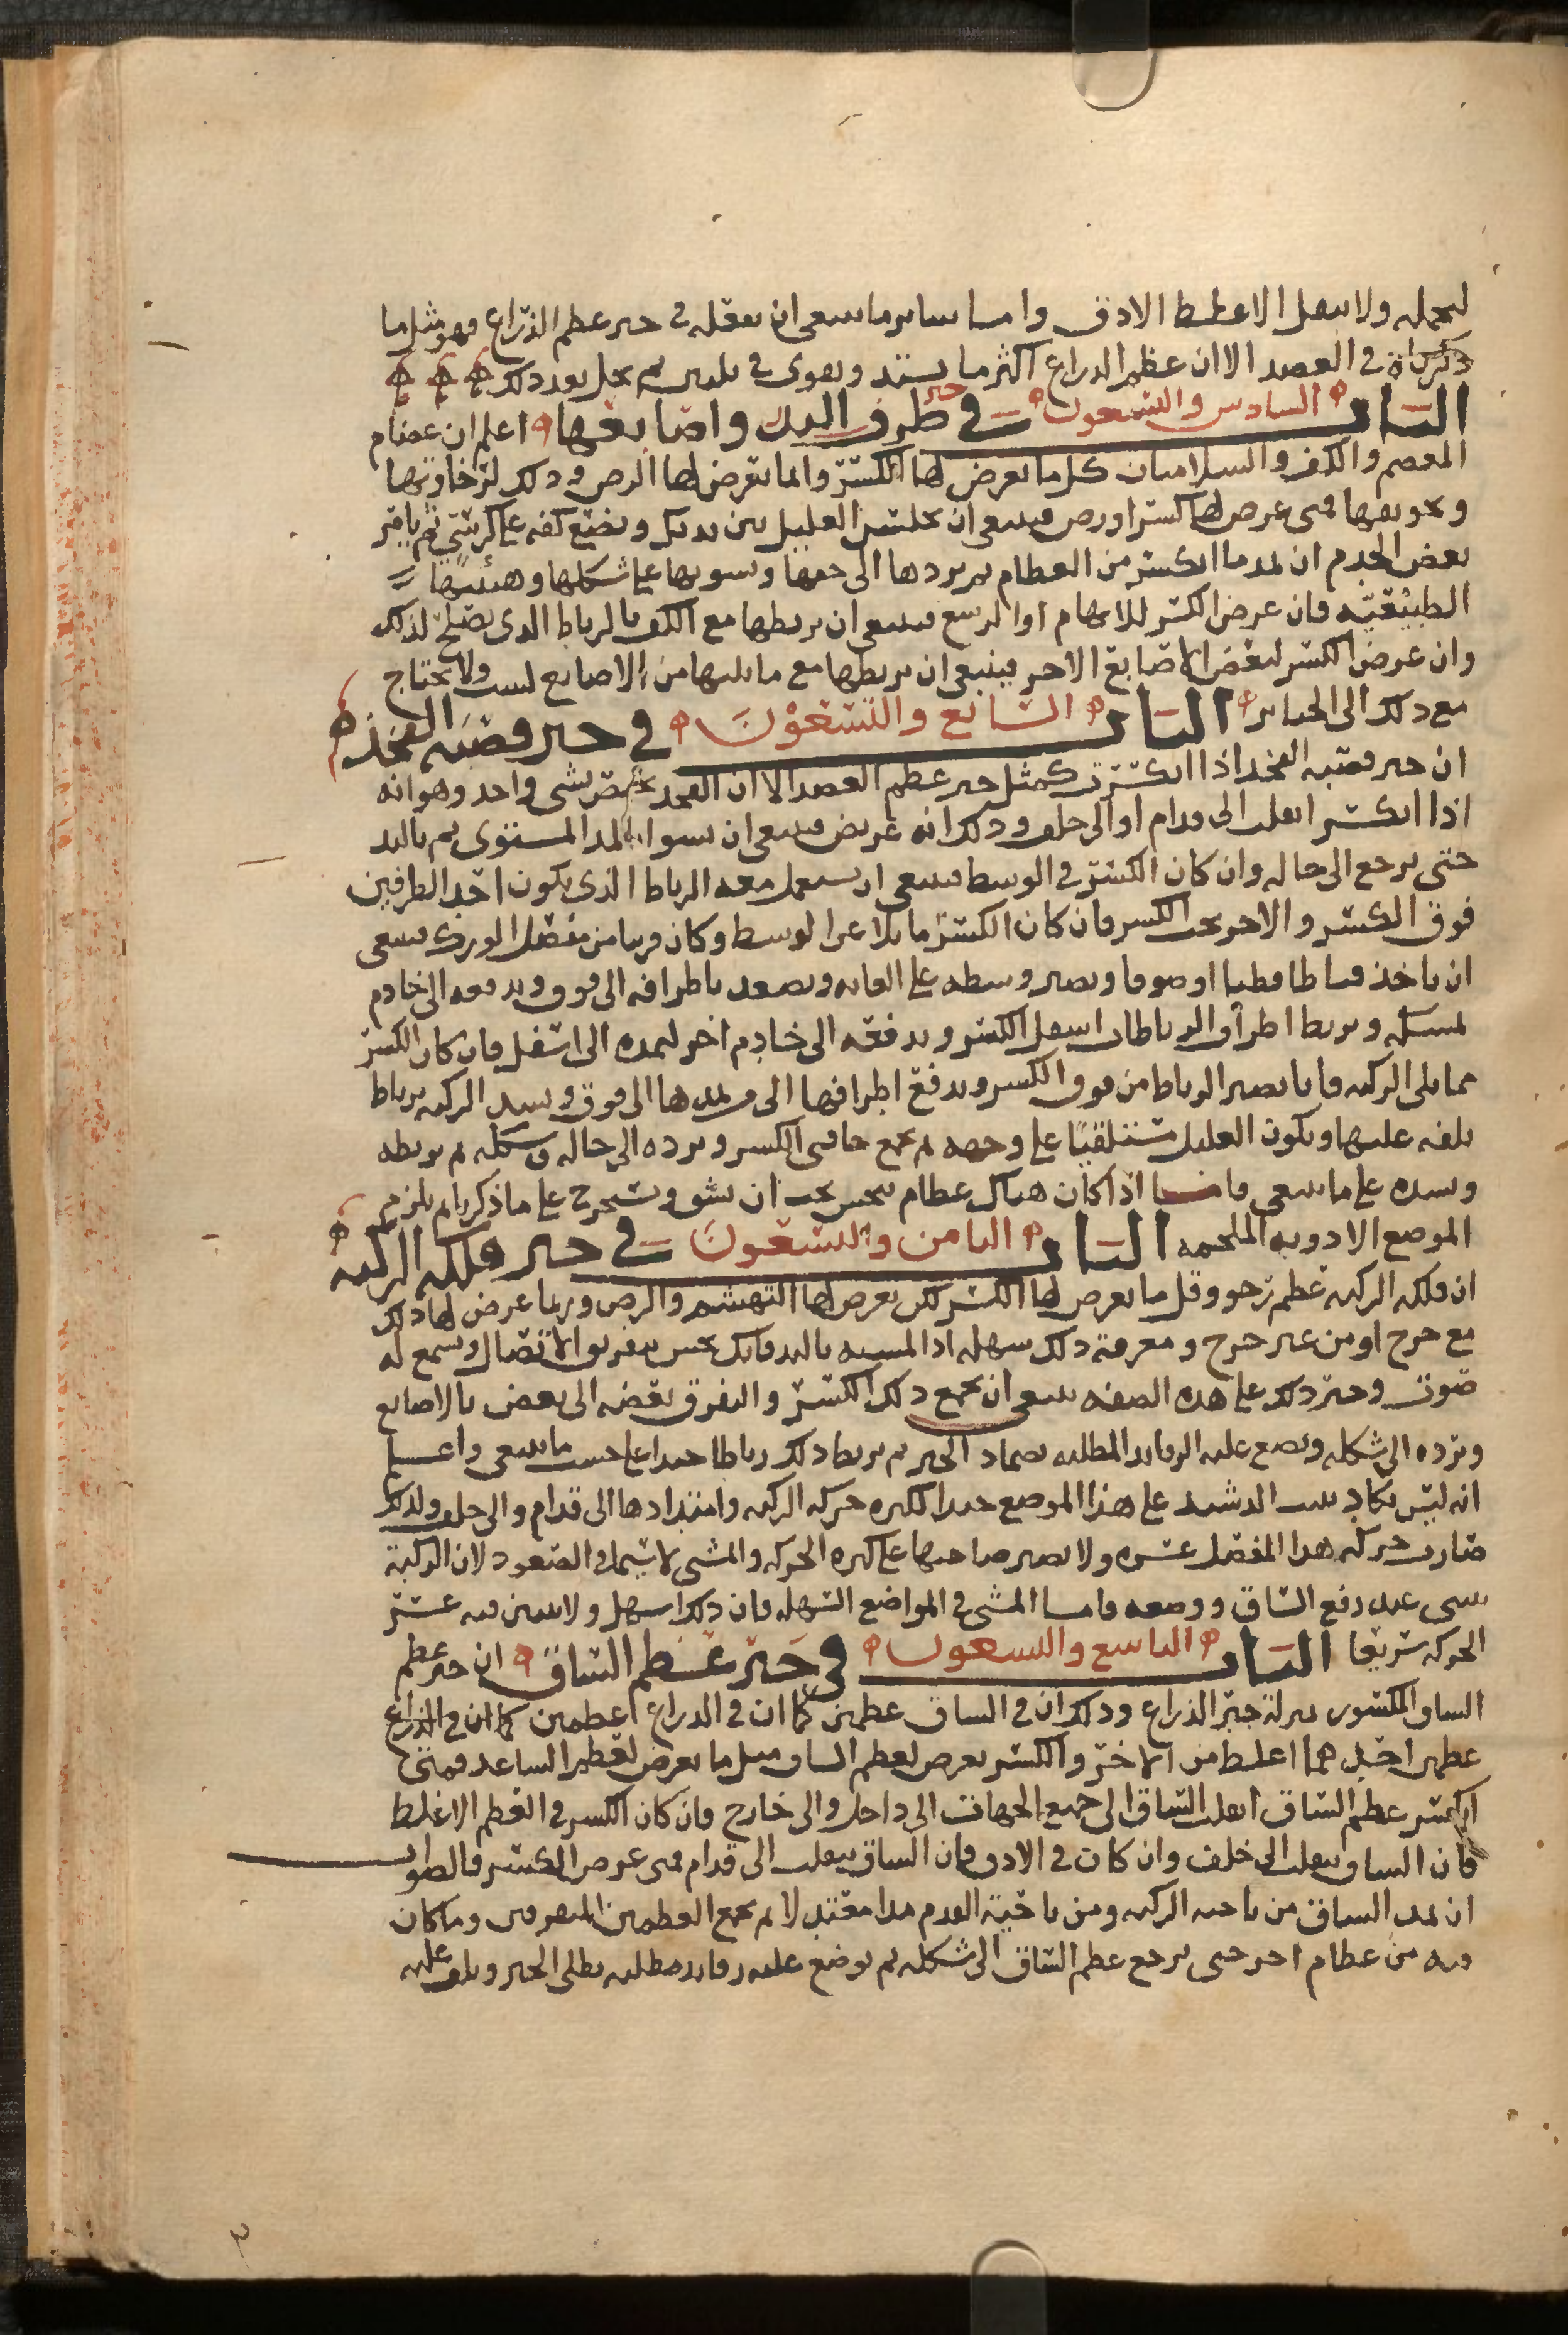 ليحمله ولا يثقل الاغلظ الادق واما ساير ما ينبغي ان يفعله في جبر عظم الذراع فهو مثل ما
ذكرناه في العضد الا ان عظم الذراع اكثر ما يشتد ويقوى في ثم يحل بعد ذلك
الباب السادس والتسعون في جبر طرف اليد واصابعها اعلم ان عظام
المعصم والكف والسلاميات كل ما يعرض لها الكسر وانما يعرض لها الرض وذلك لرخاوتها
وتجويفها فمتى عرض لها كسر او رض فينبغي ان يجلس العليل بين يديك ويضع كفه على كرسي ثم يامر
بعض الخدم ان يمد ما انكسر من العظام ثم يردها الى وسويها على شكلها وهيئتها
الطبيعية فان عرض الكسر للابهام او الرسغ فينبغي ان يربطها مع الكف بالرباط الذي يصلح لذلك
وان عرض الكسر لبعض الاصابع الاخر فينبغي ان يربطها مع ما يليها من الاصابع لتثبت ولا يحتاج
مع ذلك الى الجباير الباب السابع والتسعون في جبر قصبة الفخذ
ان جبر قصبة الفخذ اذا انكسرت كمثل جبر عظم العضد الا ان الفخذ يختص بشي واحد وهو انه
اذا انكسر انقلب الى قدام او الى خلف وذلك انه عريض فينبغي ان يسوا بالمد المستوي ثم باليد
حتى يرجع الى حاله وان كان الكسر في الوسط فينبغي ان يستعمل معه الرباط الذي يكون احد الطرفين
فوق الكسر والاخر تحت الكسر فان كان الكسر مايلا عن الوسط وكان قريبا من مفصل الورك فينبغي
ان ياخذ قماطا قطنا او صوفا ويصير وسطه على العانه ويصعد باطرافه الى فوق ويدفعه الى خادم
يمسكه ويربط اطراف الرباطان اسفل الكسر ويدفعه الى خادم اخر ليمده الى اسفل فان كان الكسر
مما يلي الركبه فانا نصير الرباط من فوق الكسر ويدفع اطرافها الى من يمدها الى فوق ويشد الركبه برباط
يلفه عليها ويكون العليل مستلقيًا على وجهه ثم يجمع حافتي الكسر ويرده الى حاله وشكله ثم يربطه
ويشده على ما ينبغي فاما اذا كان هناك عظام تنخس يجب ان يشق ويستخرج على ما ذكرنا ثم يلزم
الموضع الادويه الملحمه الباب الثامن والتسعون في جبر فلكة الركبه
ان فلكه الركبه عظم رخو وقل ما يعرض لها الكسر لكن يعرض لها التهشم والرض وربما عرض لها ذلك
مع جرح او من غير جرح ومعرفة ذلك سهله اذا لمسته باليد فانك تحس بتفريق الاتصال ويسمع له
صوت وجبر ذلك على هذه الصفه ينبغي ان يجمع ذلك الكسر والتفرق بعضه الى بعض بالاصابع
ويرده الى شكله ويضع عليه الرفايد المطليه بضماد الجبر ثم يربط ذلك رباطا جيدا على حسب ما ينبغي واعلم
انه ليس يكاد يثبت الدشبد على هذا الموضع جيدا لكثره حركه الركبه وامتدادها الى قدام والى خلف ولذلك
صارت حركه هذا المفصل عسره ولا يصبر صاحبها على كثره الحركه والمشي لا سيما في الصعود لان الركبة
تنثني عند رفع الساق ووضعه فاما المشي في المواضع السهله فان ذلك اسهل ولا يتبين فيه عسر
الحركه سريعا الباب التاسع والتسعون في جبر عظم الساق ان جبر عظم
الساق المكسور بمنزلة جبر الذراع وذلك ان في الساق عظمين كما ان في الذراع عظمين كما ان في الذراع
عظمين احدهما اغلظ من الاخر والكسر يعرض لعظم الساق مثل ما يعرض لعظم الساعد فمتى
انكسر عظم الساق انقلب الساق الى جميع الجهات الى داخل والى خارج فان كان الكسر في العظم الاغلظ
فان الساق ينقلب الى خلف وان كان في الادق فان الساق ينقلب الى قدام فمتى عرض الكسر فالصواب
ان يمد الساق من ناحيه الركبه ومن ناحية القدم مدا معتدلا ثم يجمع العظمين المتفرقين وما كان
فيه من عظام اخر حتى يرجع عظم الساق الى شكله ثم يوضع عليه رفايد مطليه بطلى الجبر ويلف عليه